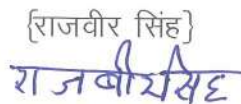 {राजवीर सिंह}
राजबीरसिंह